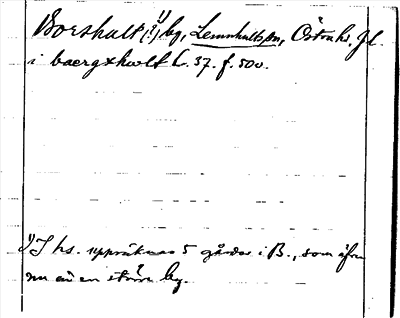 Borshult(?) ¹) by, Lemnhults sn, Östra hs. Jl.
i baergxhwlt C. 37. f. 500.
¹) I hs. uppräknas 5 gårdar i B., som äfven
nu är en större by.